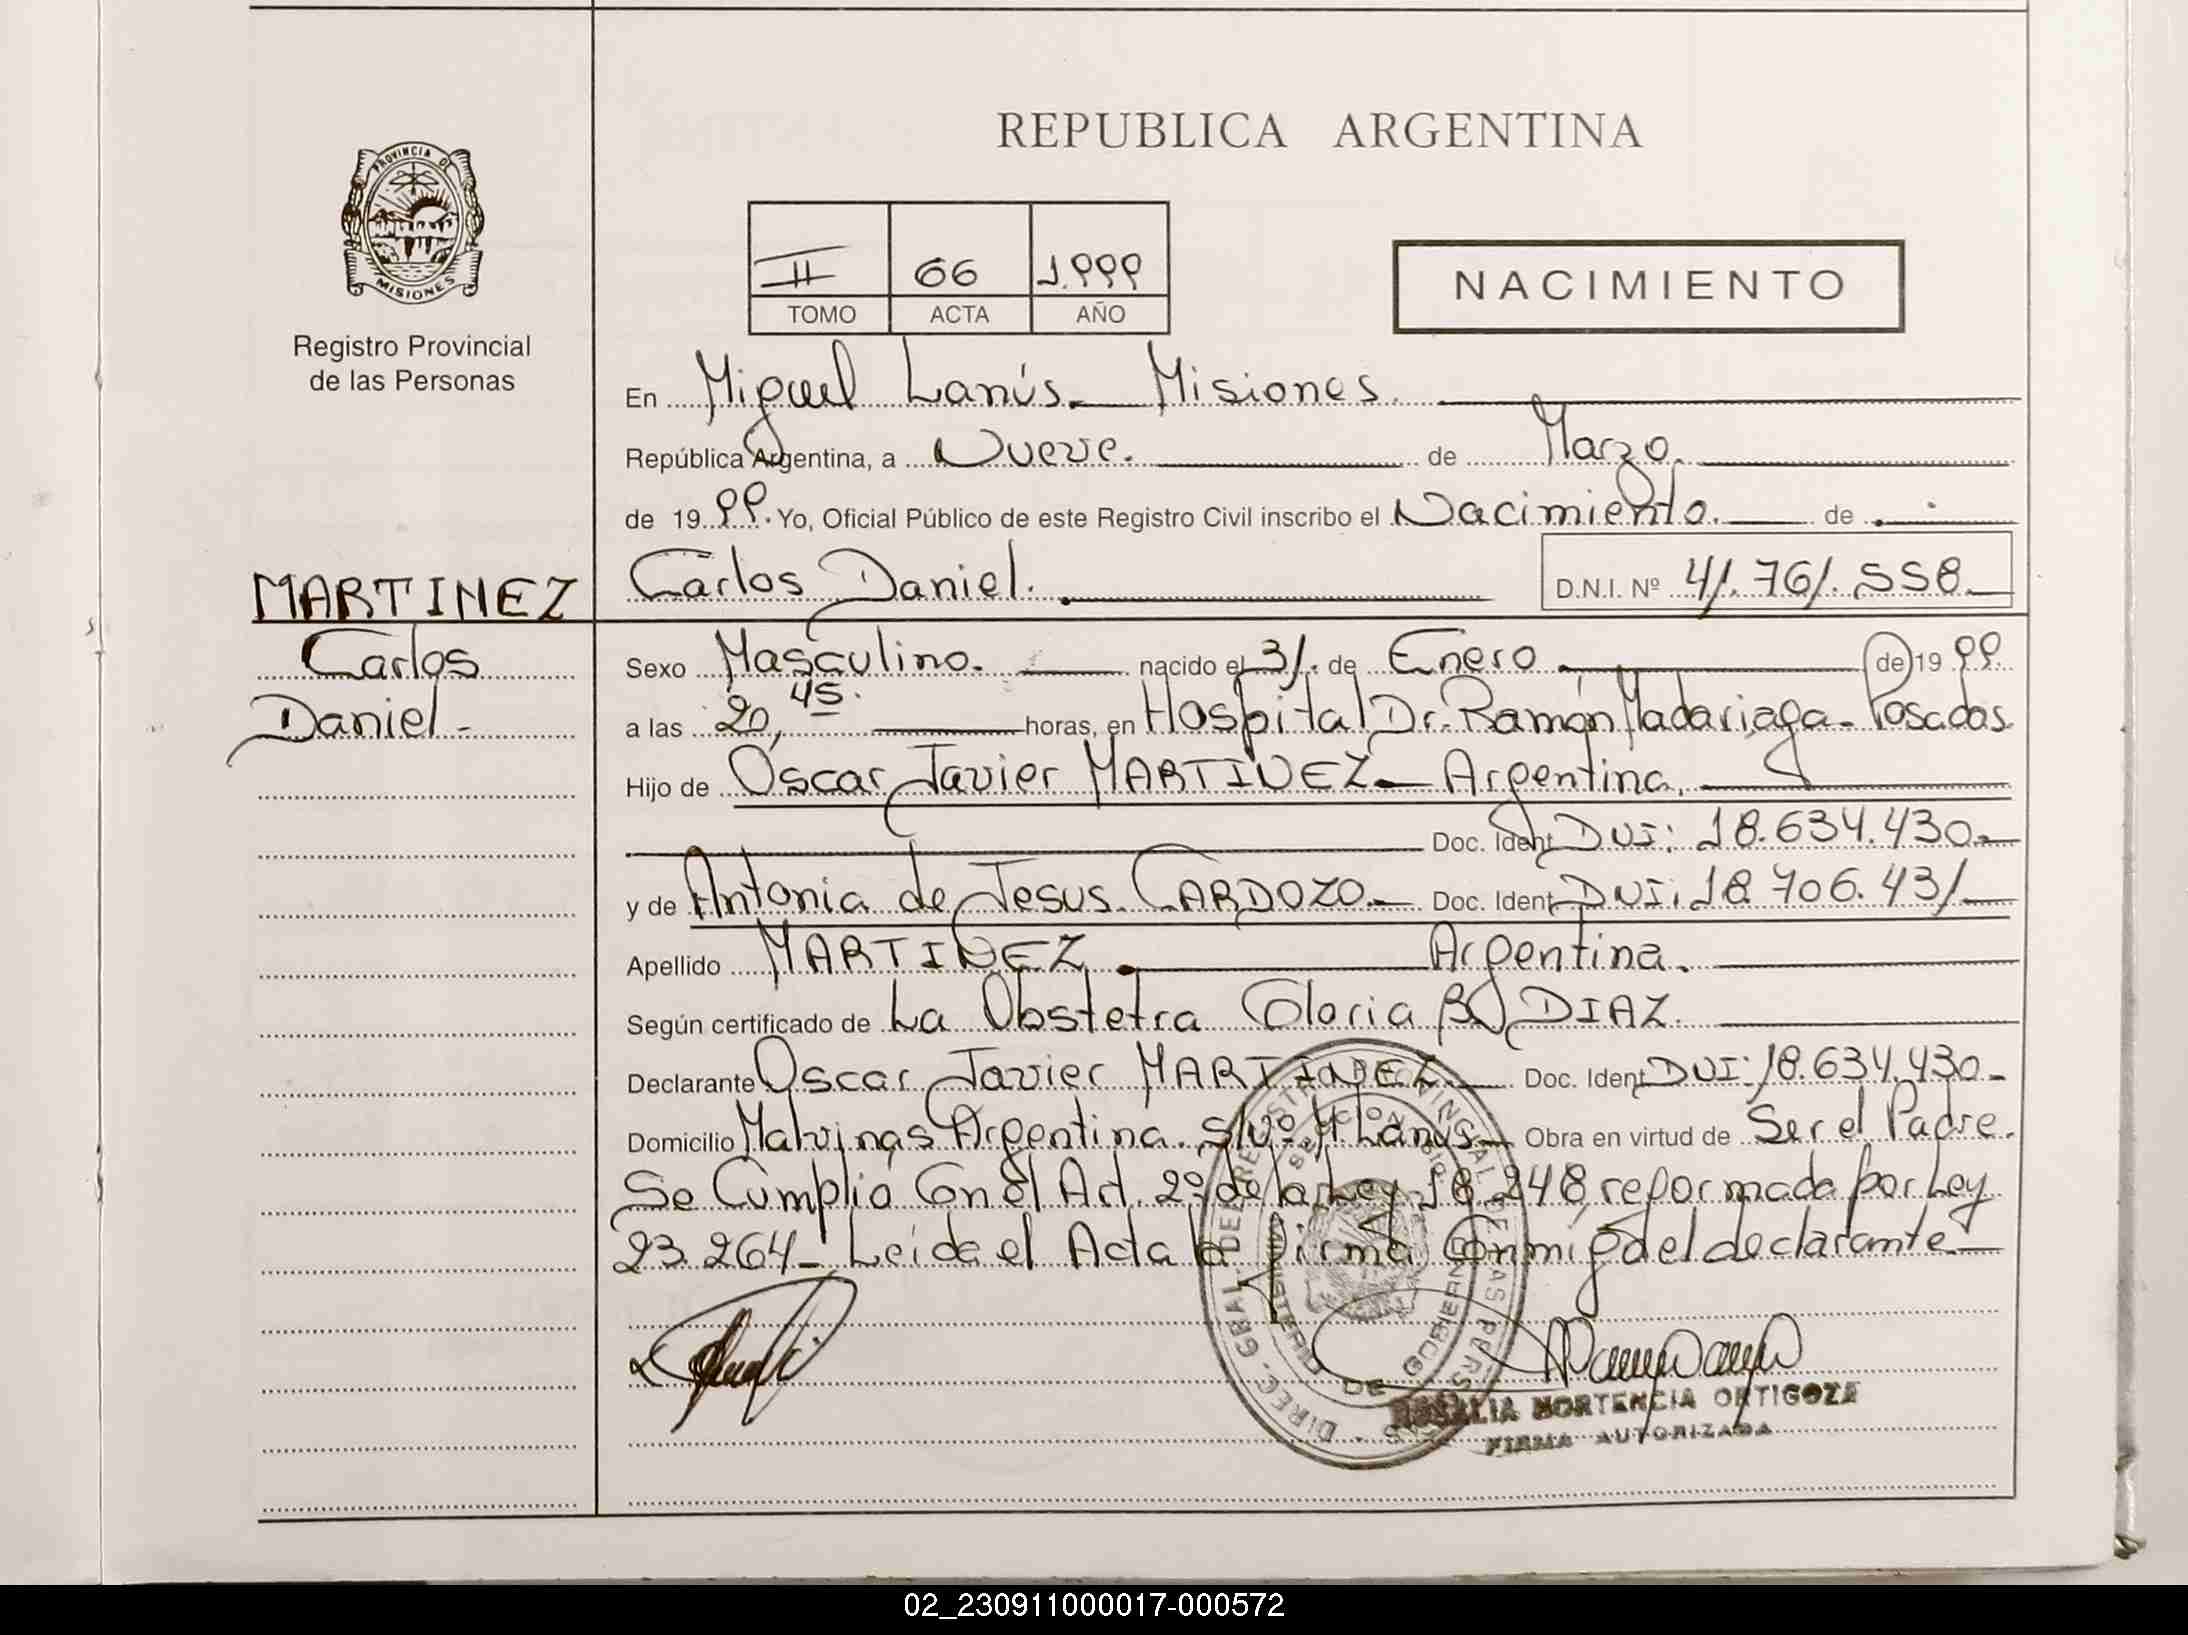 REPUBLICA ARGENTINA
PROVINCIA DE
MISIONES
Registro Provincial
de las Personas
II 66 1.999
TOMO ACTA AÑO
NACIMIENTO
En Miguel Lanús - Misiones.
República Argentina, a Nueve. de Marzo.
de 1999. Yo, Oficial Público de este Registro Civil inscribo el Nacimiento. de
MARTINEZ
Carlos
Daniel -
Carlos Daniel. D.N.I. Nº 41.761.558.-
Sexo Masculino. nacido el 31. de Enero de 1999.
a las 20,45. horas, en Hospital Dr. Ramón Madariaga - Posadas
Hijo de Oscar Javier MARTINEZ - Argentina.
Doc. Ident DNI: 18.634.430.-
y de Antonia de Jesus CARDOZO.- Doc. Ident DNI: 18.706.431-
Apellido MARTINEZ. Argentina.
Según certificado de La Obstetra Gloria B. DIAZ.
Declarante Oscar Javier MARTINEZ.- Doc. Ident DNI: 18.634.430-
Domicilio Malvinas Argentina. S/Nº. M. Lanús- Obra en virtud de Ser el Padre.
Se Cumplió Con el Art. 2º de la Ley 18.248 reformada por Ley
23.264- Leída el Acta la firma Conmigo el declarante-
DIREC. GRAL. DEL REGISTRO PROVINCIAL DE LAS PERSONAS
MINISTERIO DE GOBIERNO
ROSALIA HORTENCIA ORTIGOZA
FIRMA AUTORIZADA
02_230911000017-000572